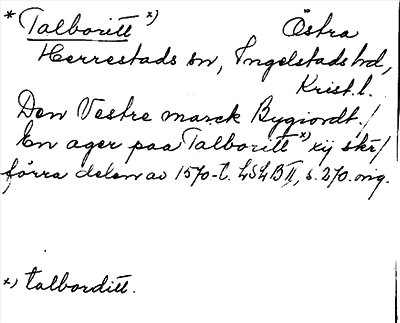 * Talboritt x) Östra
Herrestads sn, Ingelstads hd,
Krist. l.
Den Vestre marck Bygiordt./
En ager paa Talboritt x) xij skr/
förra delen av 1570-t. LSLB II, s. 270. orig.
x) talborditt.